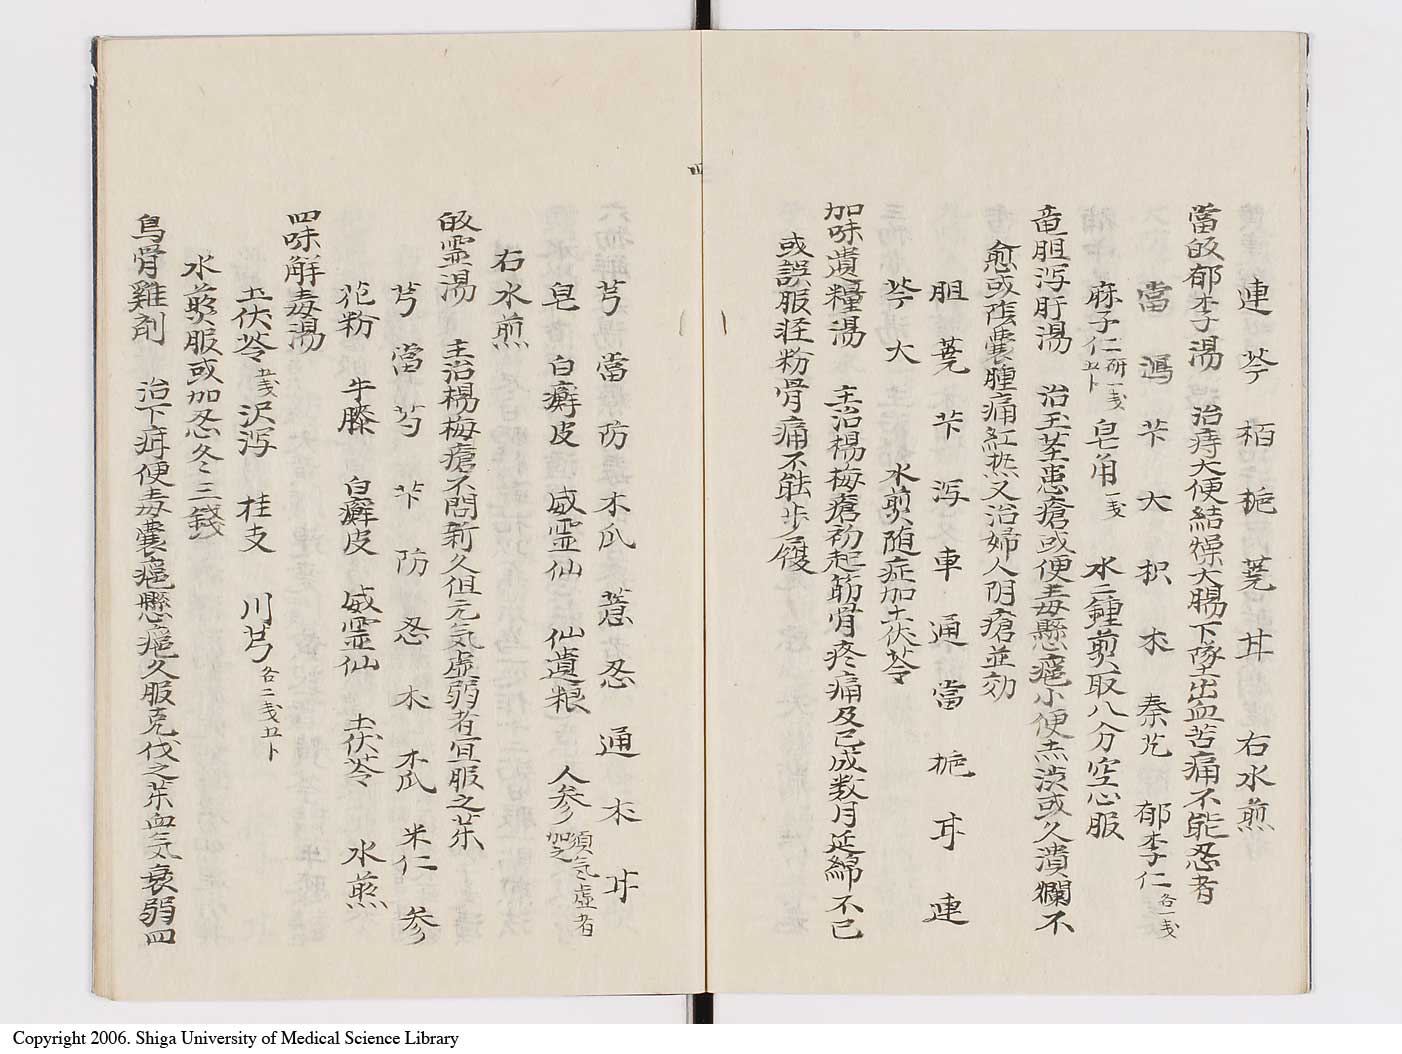 連 芩 栢 梔 蒄 丼 右水煎
當皈郁李子湯 治痔大便結燥大腸下墜出血苦痛不能忍者
當 澙 芐 大 枳 朮 秦芁 郁李仁各一戋
麻子仁研一戋五卜 皂角一戋 水二鍾煎取八分空心服
竜胆泻肝湯 治玉茎患瘡或便毒懸癰小便赤渋或久潰爛不
愈或陰嚢腫痛紅热又治婦人阴瘡並効
胆 蒄 芐 泻 車 通 當 梔 甘 連
芩 大 水煎随症加土伏苓
加味遺糧湯 主治楊梅瘡初起筋骨疼痛及已成数月延綿不已
或誤服荘粉骨痛不能歩履
四
芎 當 防 木瓜 薏 忍 通 朮 甘
皂 白癬皮 威霊仙 仙遺粮 人参須気虚者加之
右水煎
皈霊湯 主治楊梅瘡不問新久但元気虚弱者宜服之茱
芎 當 芍 芐 防 忍 木 木瓜 米仁 参
花粉 牛膝 白癬皮 威霊仙 土茯苓 水煎
四味解毒湯
土伏苓五戋 沢泻 桂支 川芎各二戋五卜
水煎服或加忍冬三錢
鳥骨雞剤 治下疳便毒嚢癰懸癰久服克伐之茱血気衰弱四
Copyright 2006. Shiga University of Medical Science Library